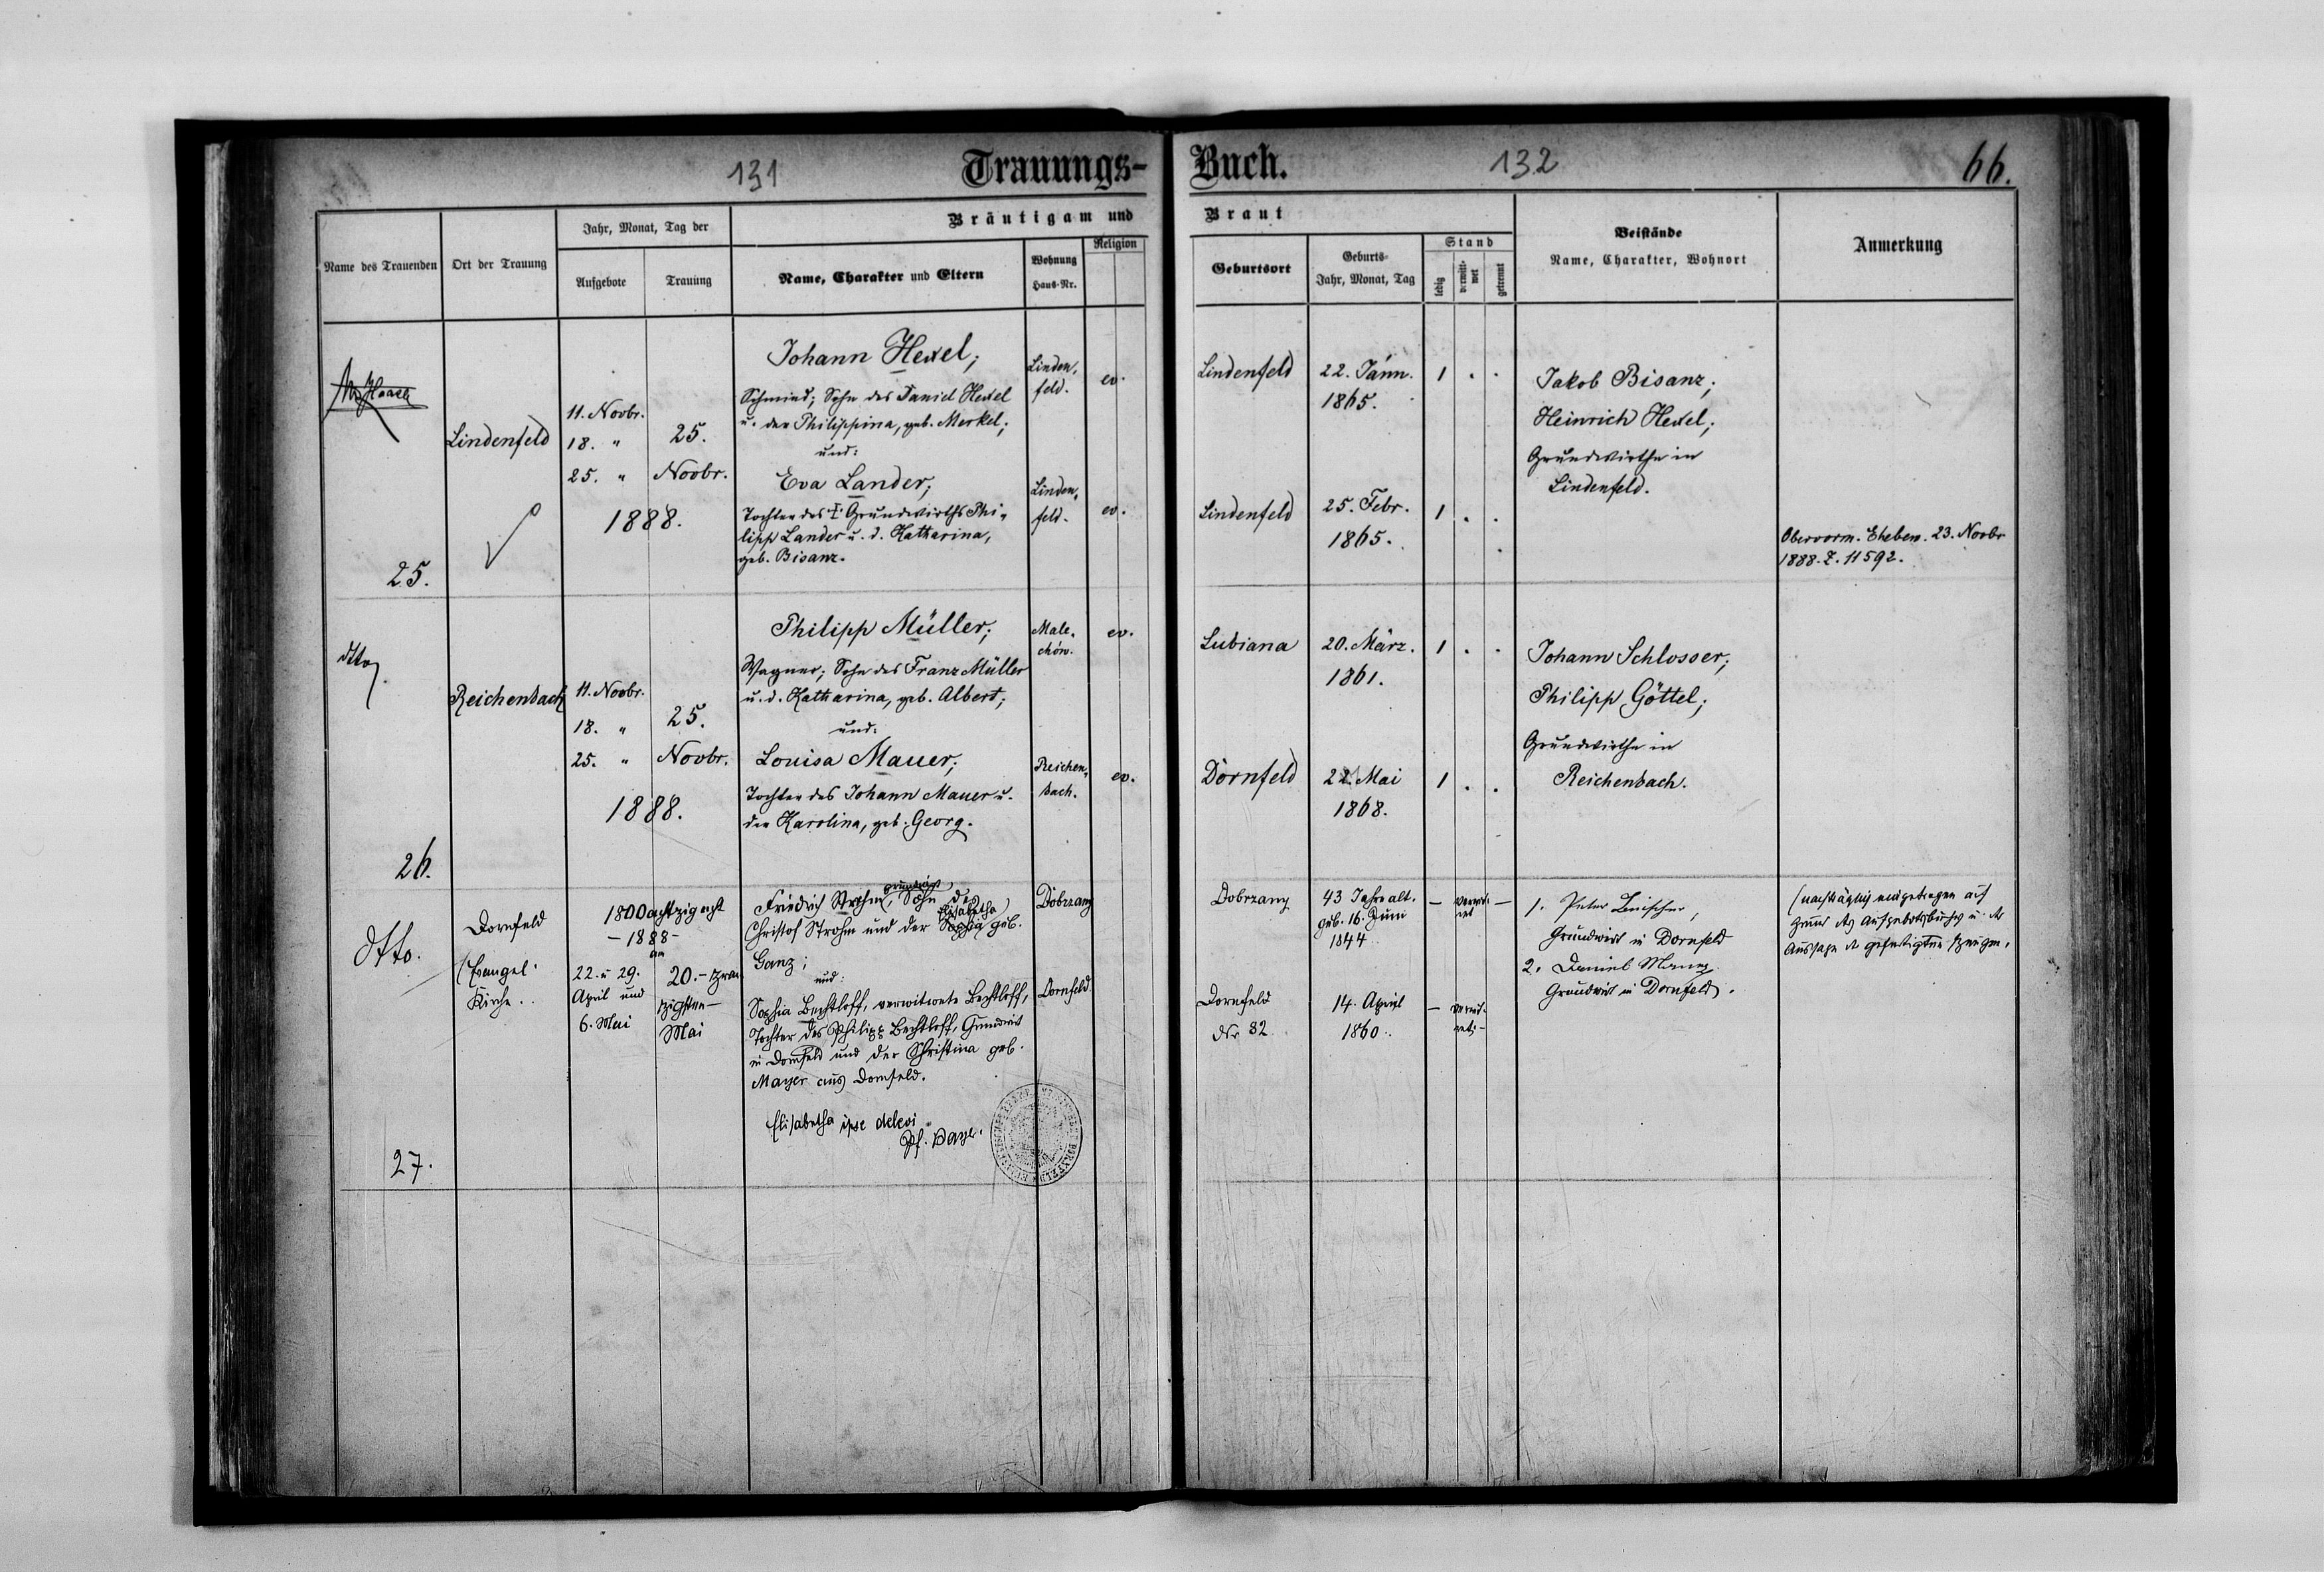 131
Trauungs-
Buch.
132
66.
Name des Trauenden
Ort der Trauung
Jahr, Monat, Tag der
Aufgebote
Trauung
Bräutigam und
Name, Charakter und Eltern
Wohnung
Haus-Nr.
Religion
Braut
Geburtsort
Geburts-
Jahr, Monat, Tag
Stand
ledig
verwitt-
wet
getrennt
Beistände
Name, Charakter, Wohnort
Anmerkung
Haase
25.
Lindenfeld
11. Novbr.
18. "
25. "
25.
Novbr.
1888.
Johann Hexel;
Schmied; Sohn des Daniel Hexel
u. der Philippina, geb. Merkel;
und:
Eva Lander;
Tochter des † Grundwirths Phi-
lipp Lander u. d. Katharina,
geb. Bisanz.
Linden-
feld.
ev.
Linden-
feld.
ev.
Lindenfeld
22. Jänn.
1865.
1 . .
Lindenfeld
25. Febr.
1865.
1 . .
Jakob Bisanz;
Heinrich Hexel;
Grundwirthe in
Lindenfeld.
Obervorm. Ehebew. 23. Novbr
1888. Z. 11592.
dtto
26.
Reichenbach
11. Novbr.
18. "
25. "
25.
Novbr.
1888.
Philipp Müller;
Wagner; Sohn des Franz Müller
u. d. Katharina, geb. Albert;
und:
Louisa Mauer;
Tochter des Johann Mauer u.
der Karolina, geb. Georg.
Male-
chów.
ev.
Reichen-
bach.
ev.
Lubiana
20. März.
1861.
1 . .
Dornfeld
22. Mai
1868.
1 . .
Johann Schlosser;
Philipp Göttel;
Grundwirthe in
Reichenbach.
dtto.
27.
Dornfeld
(Evangel.
Kirche.
1800achtzigacht
-1888-
am
22. u 29.
April und
6. Mai
20. - zwan
zigsten -
Mai
Grundwirt
Friedrich Strohm, Sohn des
Elisabetha
Christof Strohm und der Sophia geb.
Ganz;
und:
Sophia Bechtloff, verwitwete Bechtloff,
Tochter des Philipp Bechtloff, Grundwirt
in Dornfeld und der Christina geb.
Mayer aus Dornfeld.
Elisabetha ipse delevi
Pf. Payer.
Dobrzany
Dornfeld
Dobrzany
43 Jahre alt.
geb. 16. Juni
1844
- verwit-
wet -
Dornfeld
Nr 82
14. April
1860.
- verwit-
wet -
1. Peter Lutscher,
Grundwirt in Dornfeld
2. Daniel Mauer
Grundwirt in Dornfeld.
(nachträglich eingetragen auf
Grund des Aufgebotsbuches u. der
Aussage der gefertigten Zeugen.